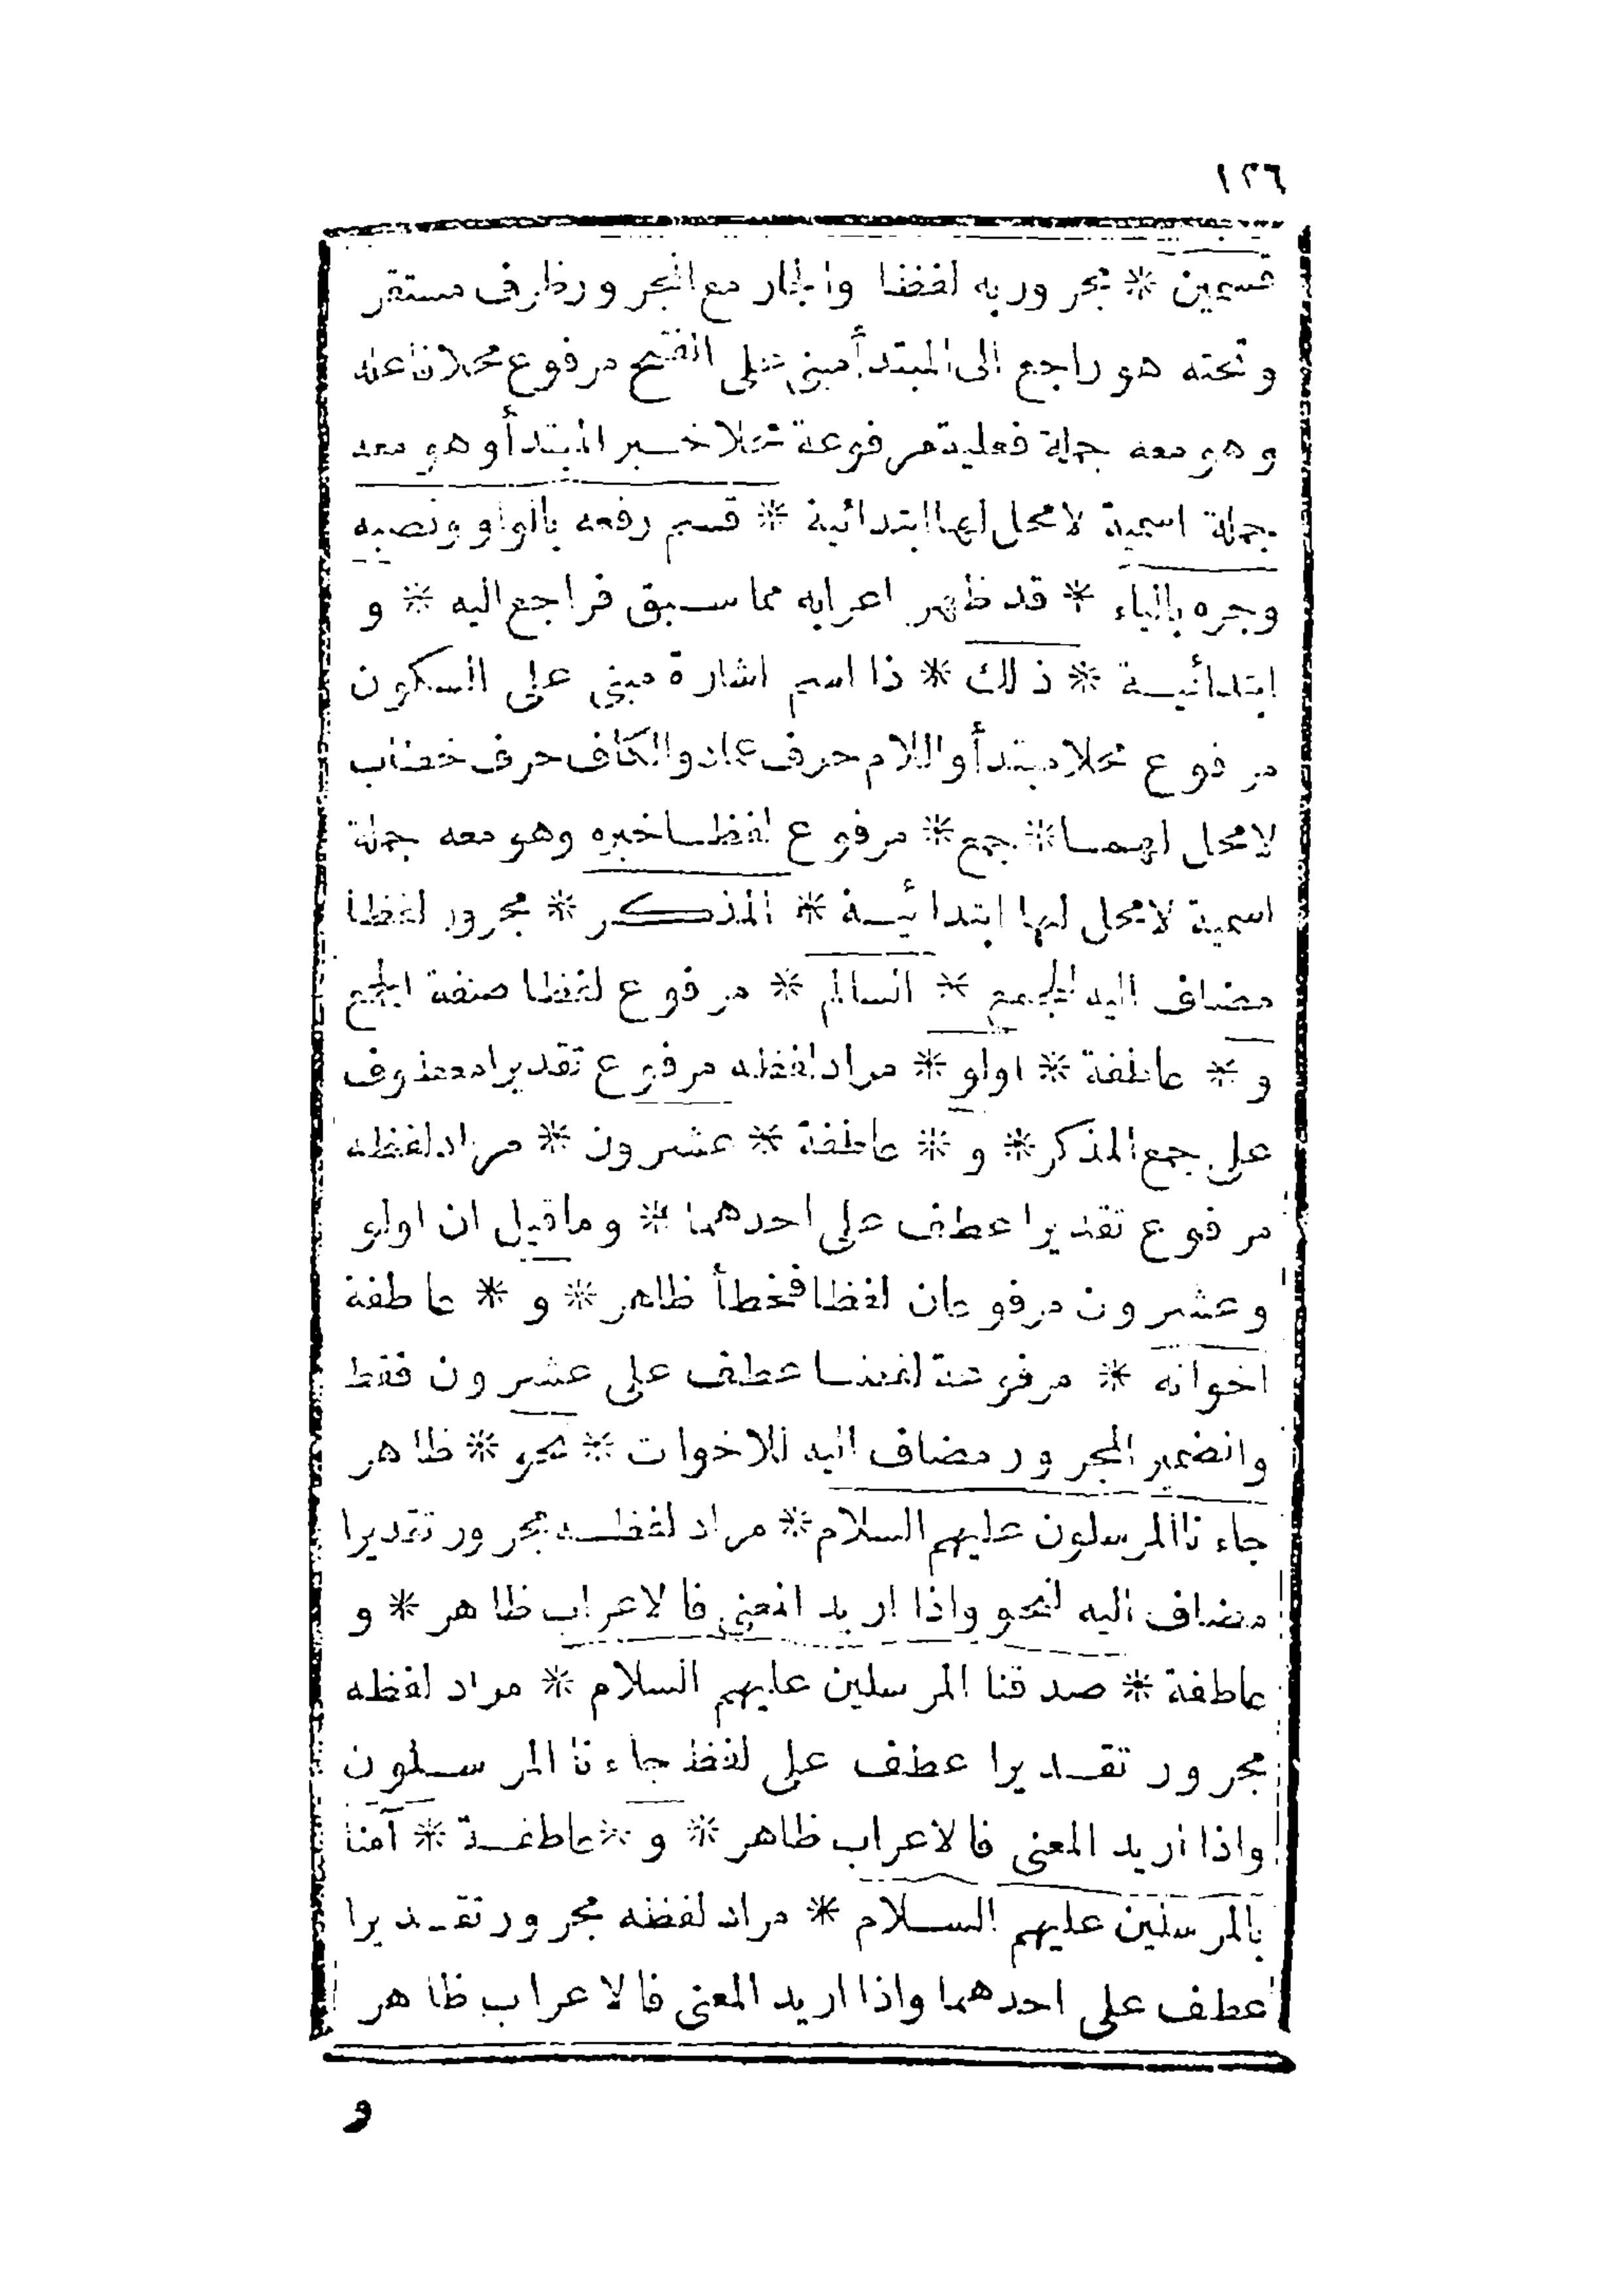 ١٢٦
قسمين * مجرور به لفظا والجار مع المجرور ظرف مستقر
وتحته هو راجع الى المبتدأ مبنى على الفتح مرفوع محلا فاعله
وهو معه جملة فعلية مرفوعة محلا خبر المبتدأ وهو معه
جملة اسمية لا محل لها ابتدائية * قسم رفعه بالواو ونصبه
وجره بالياء * قد ظهر اعرابه مما سبق فراجع اليه * و
ابتدائية * ذلك * ذا اسم اشارة مبنى على السكون
مرفوع محلا مبتدأ واللام حرف عماد والكاف حرف خطاب
لا محل لهما * جمع * مرفوع لفظا خبره وهو معه جملة
اسمية لا محل لها ابتدائية * المذكر * مجرور لفظا
مضاف اليه لجمع * السالم * مرفوع لفظا صفة الجمع
و * عاطفة * اولو * مراد لفظه مرفوع تقديرا معطوف
على جمع المذكر * و * عاطفة * عشرون * مراد لفظه
مرفوع تقديرا عطف على احدهما * وما قيل ان اولو
وعشرون مرفوعان لفظا فخطأ ظاهر * و * عاطفة
اخواته * مرفوعة لفظا عطف على عشرون فقط
والضمير المجرور مضاف اليه للاخوات * نحو * ظاهر
جاءنا المرسلون عليهم السلام * مراد لفظه مجرور تقديرا
مضاف اليه لنحو واذا اريد المعنى فالاعراب ظاهر * و
عاطفة * صدقنا المرسلين عليهم السلام * مراد لفظه
مجرور تقديرا عطف على لفظ جاءنا المرسلون
واذا اريد المعنى فالاعراب ظاهر * و * عاطفة * آمنا
بالمرسلين عليهم السلام * مراد لفظه مجرور تقديرا
عطف على احدهما واذا اريد المعنى فالاعراب ظاهر
و